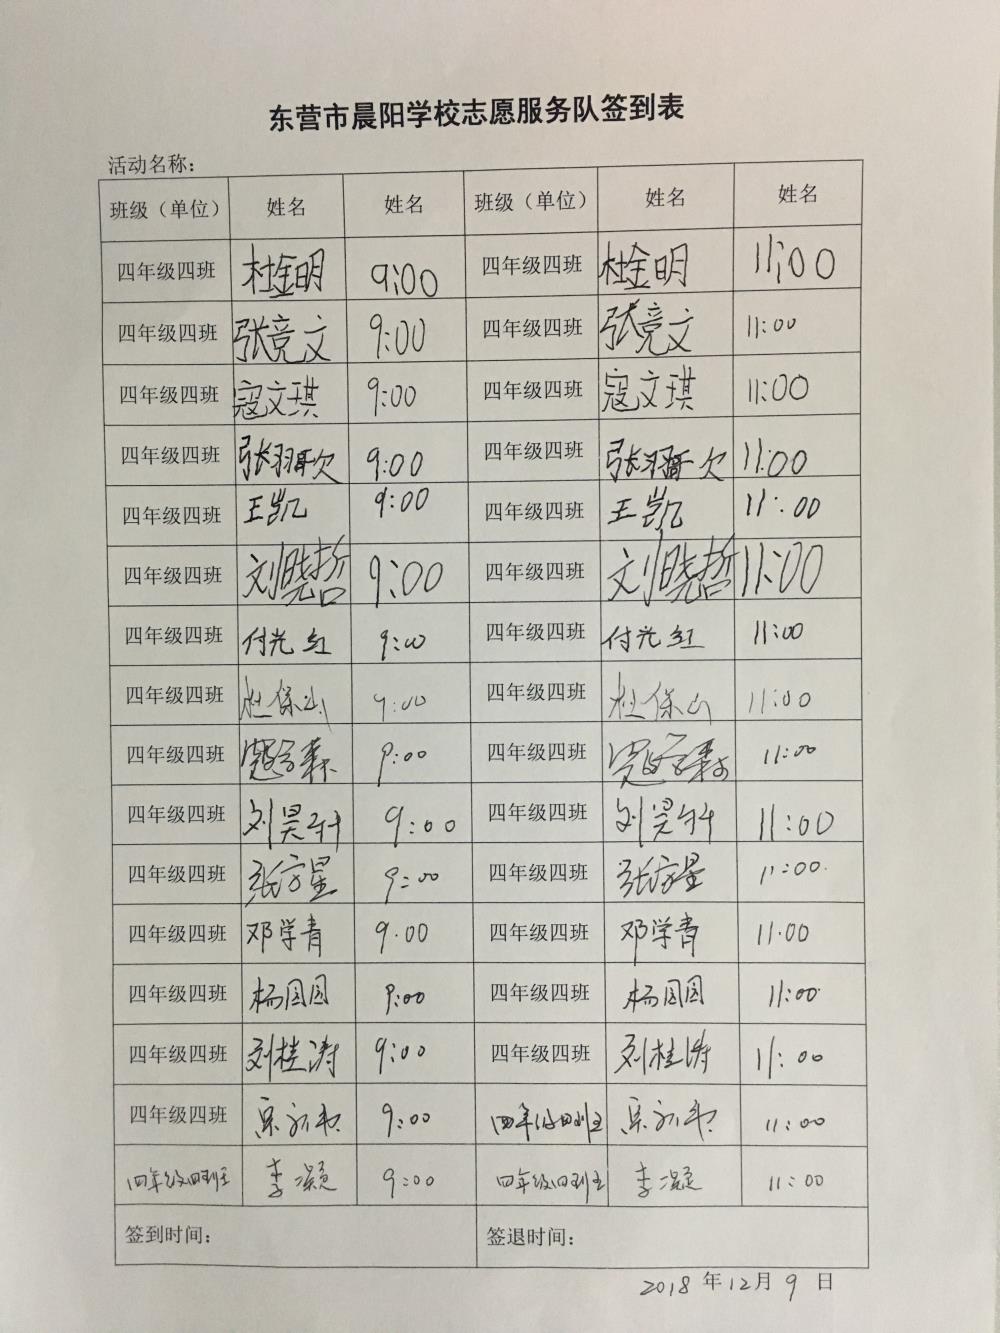 东营市晨阳学校志愿服务队签到表
活动名称：
班级（单位） 姓名 姓名 班级（单位） 姓名 姓名
四年级四班 杜金明 9:00 四年级四班 杜金明 11:00
四年级四班 张竞文 9:00 四年级四班 张竞文 11:00
四年级四班 寇文琪 9:00 四年级四班 寇文琪 11:00
四年级四班 9:00 四年级四班 11:00
四年级四班 王凯 9:00 四年级四班 王凯 11:00
四年级四班 刘晓哲 9:00 四年级四班 刘晓哲 11:00
四年级四班 付光红 9:00 四年级四班 付光红 11:00
四年级四班 杜保山 9:00 四年级四班 杜保山 11:00
四年级四班 9:00 四年级四班 11:00
四年级四班 刘昊轩 9:00 四年级四班 刘昊轩 11:00
四年级四班 9:00 四年级四班 11:00
四年级四班 邓学青 9.00 四年级四班 邓学青 11.00
四年级四班 杨园园 9:00 四年级四班 杨园园 11:00
四年级四班 刘桂涛 9:00 四年级四班 刘桂涛 11:00
四年级四班 9:00 四年级四班 11:00
四年级四班 李凝 9:00 四年级四班 李凝 11:00
签到时间： 签退时间：
2018 年 12 月 9 日